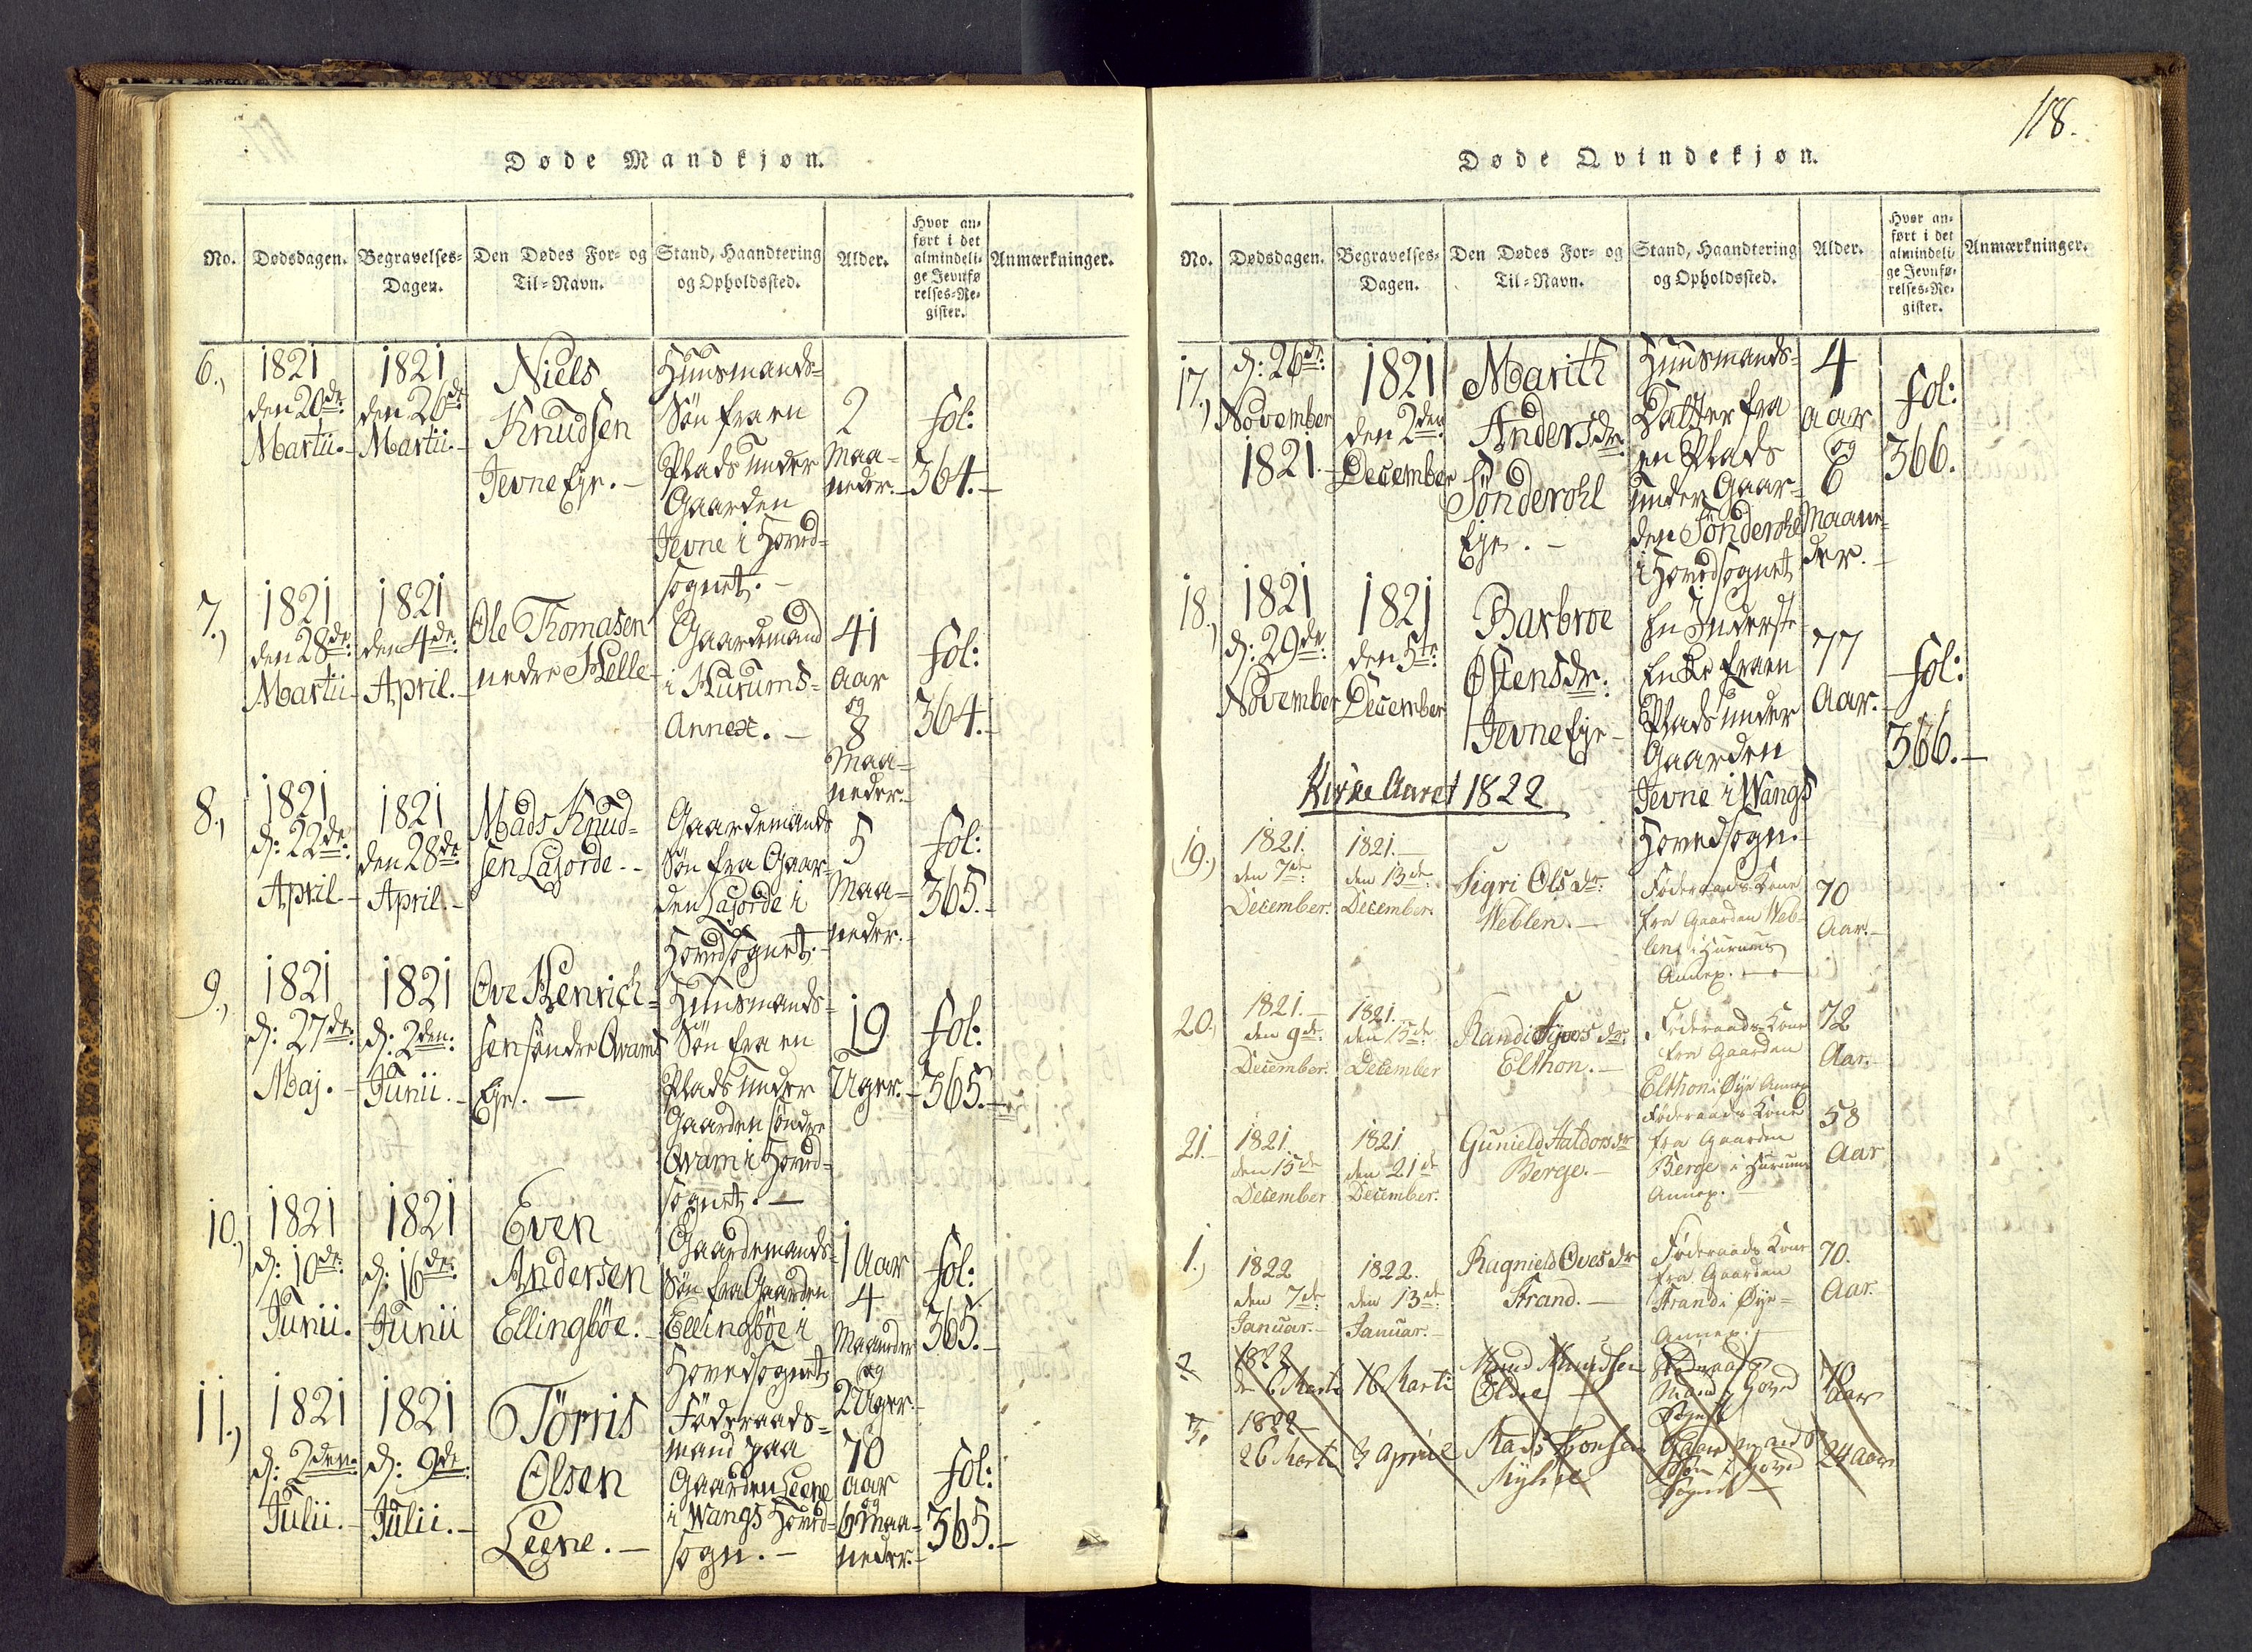 Døde Mandkjøn.
No.
Dødsdagen.
Begravelses-
Dagen.
Den Dødes For- og
Til-Navn.
Stand, Haandtering
og Opholdssted.
Alder.
Hvor an-
ført i det
almindeli-
ge Jevnfø-
relses-Re-
gister.
Anmærkninger.
6.,
1821
den 20de:
Martii.-
1821
den 26de
Martii.-
Niels
Knudsen
Jevne Eje.-
Huusmands-
Søn fra en
Plads under
Gaarden
Jevne i Hoved-
sognet.-
2
Maa-
neder.-
fol:
364.-
7.,
1821
den 28de:
Martii-
1821
den 4de:
April.-
Ole Thomasen
nedre Helle
Gaardemand
i Hurums-
Annex.-
41
Aar
og
8
Maa-
neder.-
fol:
364.-
8.,
1821
d: 22de:
April-
1821
den 28de
April.-
Mads Knud-
sen Lajorde.-
Gaardemands
Søn fra Gaar-
den Lajorde i
Hovedsognet.-
5
Maa-
neder.-
fol:
365.-
9.,
1821
d: 27de:
Maj.-
1821
d: 2den:
Junii.-
Ove Henrich-
sen søndre Qvams
Eje.-
Huusmands-
Søn fra en
Plads under
Gaarden søndre
Qvam i Hoved-
sognet.-
19
Uger.-
fol:
365.-
10.,
1821
d: 10de:
Junii.
1821
d: 16de:
Junii
Even
Andersen
Ellingböe.-
Gaardemands-
Søn fra Gaarden
Ellingböe i
Hovedsognet
1 Aar
4
Maaneder
og
2 Uger.-
fol:
365.-
11.,
1821
d: 2den:
Julii.-
1821
d: 9de:
Julii.-
Törris
Olsen
Leene.-
Föderaads-
mand paa
Gaarden Leene
i Wangs Hoved-
sogn.-
70
Aar
og
6 Maa-
neder.-
fol:
365.-
118.
Døde Qvindekjøn.
No.
Dødsdagen.
Begravelses-
Dagen.
Den Dødes For- og
Til-Navn.
Stand, Haandtering
og Opholdssted.
Alder.
Hvor an-
ført i det
almindeli-
ge Jevnfø-
relses-Re-
gister.
Anmærkninger.
17.,
d: 26de:
November
1821.-
1821
den 2den
December
Marith
Andersdr:
Sönderohl
Eje.-
Huusmands-
Datter fra
en Plads
under Gaar-
den Sönderohl
i Hovedsognet
4
Aar
og
6
Maane-
der.-
fol:
366.
18.,
1821
d: 29de:
November
1821
den 5te:
December
Barbroe
Østensdr:
Jevne Eje-
En Inderste
Enke fra en
Plads under
Gaarden
Jevne i Wangs
Hovedsogn.
77
Aar.-
fol:
366.-
Kirke Aaret 1822
19.,
1821.
den 7de:
December.
1821.-
den 13de:
December.
Sigri Olsdr:
Weblen.-
Föderaads Kone
fra Gaarden Web-
len i Hurums
Annex.-
70
Aar.-
20.,
1821.-
den 9de:
December.
1821.-
den 15de:
December
Randi
Elthon.-
Föderaads-Kone
fra Gaarden
Elthon i Øye Annex
72
Aar.-
21.-
1821.
den 15de
December
1821
den 21de
December.
Gunield Haldorsdr
Berge.-
Föderaads Kone
fra Gaarden
Berge i Hurums
Annex.-
58
Aar
1.,
1822
den 7de:
Januar.-
1822.
den 13de:
Januar.-
Ragnield Ovesdr
Strand.-
Föderaads Kone
fra Gaarden
Strand i Øye-
Annex.-
70.
Aar.
2
1822
den 6 Marti
16 Marti
Knud Knudsen
Föderaads
Mand Hoved
Sognet
70
Aar
3.
1822
26 Marti
3 Aprill
Mads
Gaardmands
Søn i Hoved
Sognet
24 Aar